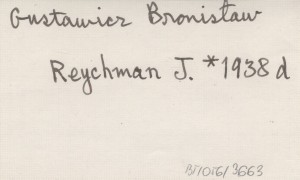 Gustawicz Bronisław
Reychman J. *1938 d
BT/OT6/3663